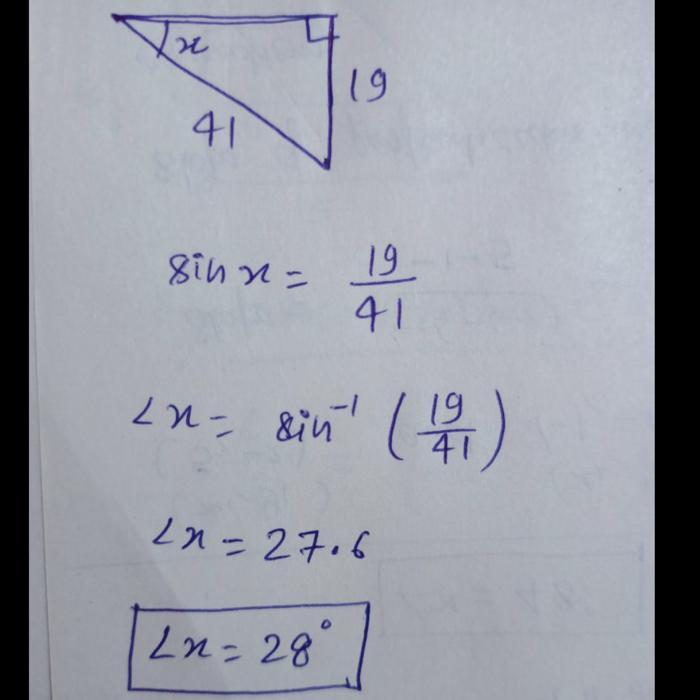 x
19
41
sin x = 19/41
∠x = sin⁻¹ (19/41)
∠x = 27.6
∠x = 28°